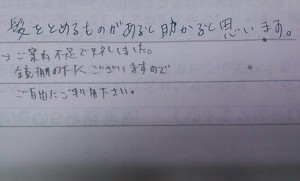 髪をとめるものがあると助かると思います。
→ご案内不足で失礼しました。
鏡棚の下にございますので
ご自由にご利用下さい。